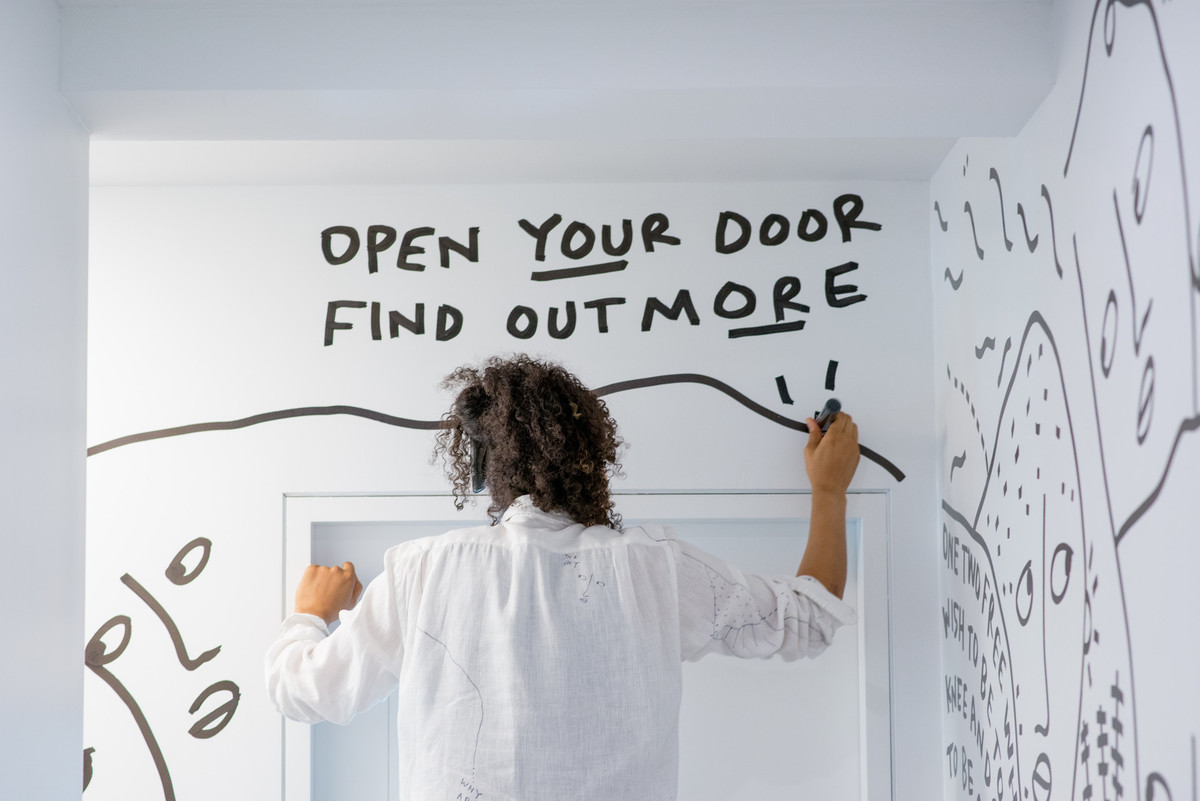 OPEN YOUR DOOR
FIND OUT MORE
ONE TWO FREE
WISH TO BE
KNEE AND
TO BE
WHY